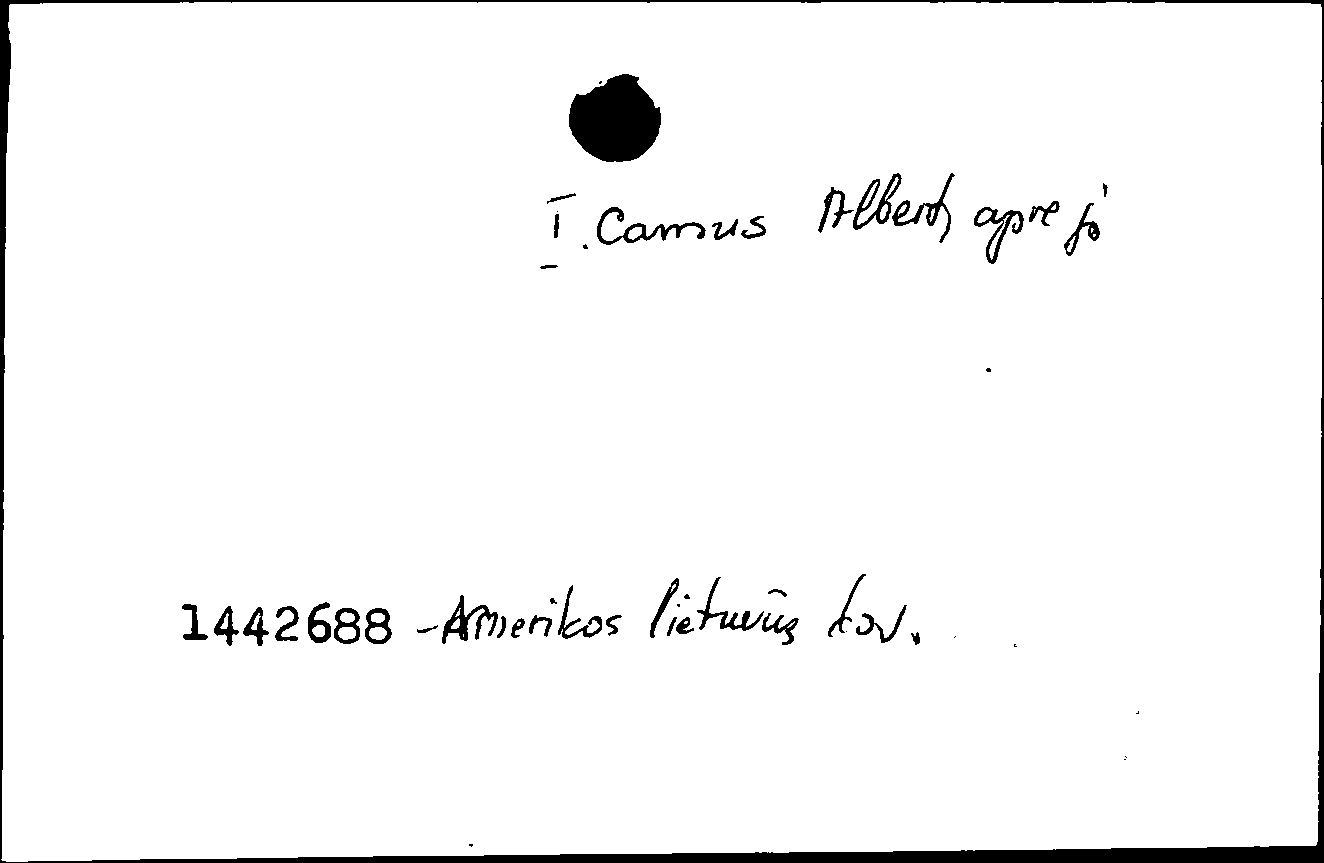 I. Camus Albert, apie jį
1442688 - Amerikos lietuvių dov.